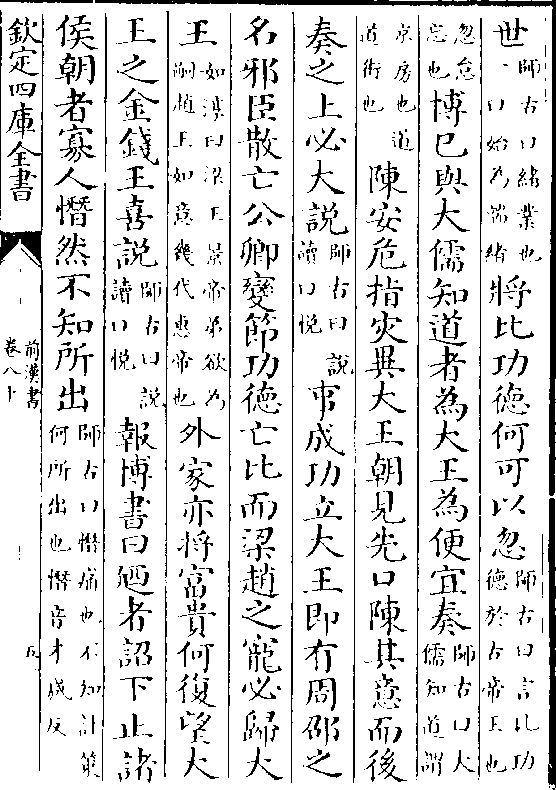 世師古曰緒業也一曰始為端緒將比功德何可以忽師古曰言比功德於古帝王也
忽怠忘也博已與大儒知道者為大王為便宜奏師古曰大儒知道謂
京房也道道術也陳安危指灾異大王朝見先口陳其意而後
奏之上必大說師古曰說讀曰悅事成功立大王即有周邵之
名邪臣散亡公卿變節功德亡比而梁趙之寵必歸大
王如淳曰梁王景帝弟欲為嗣趙王如意幾代惠帝也外家亦將富貴何復望大
王之金錢王喜說師古曰說讀曰悅報博書曰廼者詔下止諸
侯朝者寡人憯然不知所出師古曰憯痛也不知計策何所出也憯音才感反
欽定四庫全書
前漢書
卷八十
五